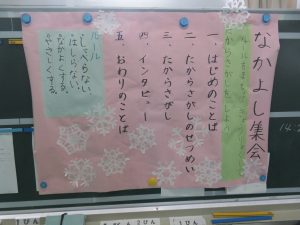 なかよし集会
たからさがしをしよう
一、はじめのことば
二、たからさがしのせつめい
三、たからさがし
四、インタビュー
五、おわりのことば
ルール
・しゃべらない
・はしらない。
・なかよくする。
・やさしくする。